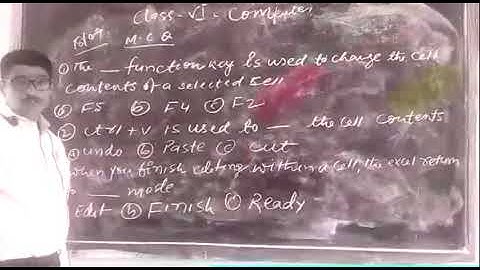 Class - VI - Computer
M.C.Q
① The __ function key is used to change the cell
contents of a selected cell
ⓐ F5 ⓑ F4 ⓒ F2
② ctrl+v is used to __ the cell contents
ⓐ undo ⓑ Paste ⓒ cut
When you finish editing within a cell, the excel return
__ mode
Edit ⓑ Finish ⓒ Ready